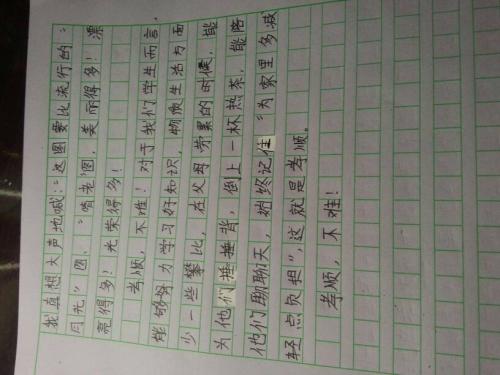 我真想大声地喊："这圈要比流行的"
月光"圈，"啃老"圈，美丽得多！漂
亮得多！光荣得多！
孝顺，不难！对于我们学生而言
能够努力学习好知识，物质生活方面
少一些攀比，在父母劳累的时候，能
为他们捶捶背，倒上一杯热茶，能陪
他们聊聊天，始终记住"为家里多减
轻点负担"，这就是孝顺。
孝顺，不难！